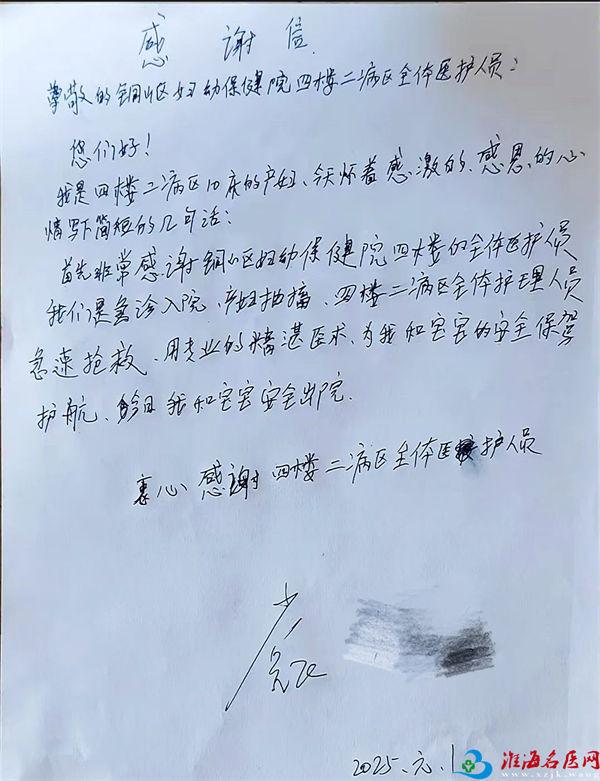 感谢信
尊敬的铜山区妇幼保健院四楼二病区全体医护人员:
您们好!
我是四楼二病区10床的产妇、今天怀着感激的、感恩的心
情写下简短的几句话:
首先非常感谢铜山区妇幼保健院四楼的全体医护人员
我们是急诊入院、产妇抽搐、四楼二病区全体护理人员
急速抢救、用专业的精湛医术、为我和宝宝的安全保驾
护航、今日我和宝宝安全出院.
衷心感谢四楼二病区全体医护人员
2025.元.1
淮海名医网
www.xzjk.wang